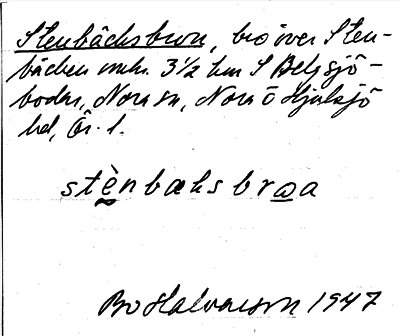 Stenbäcksbron, bro över Sten-
bäcken 3 1/2 km S Bergsjö-
bodar, Nora sn, Nora o Hjulsjö
bd, Ör. l.
stènbæksbrωa
Bo Halvarson 1947